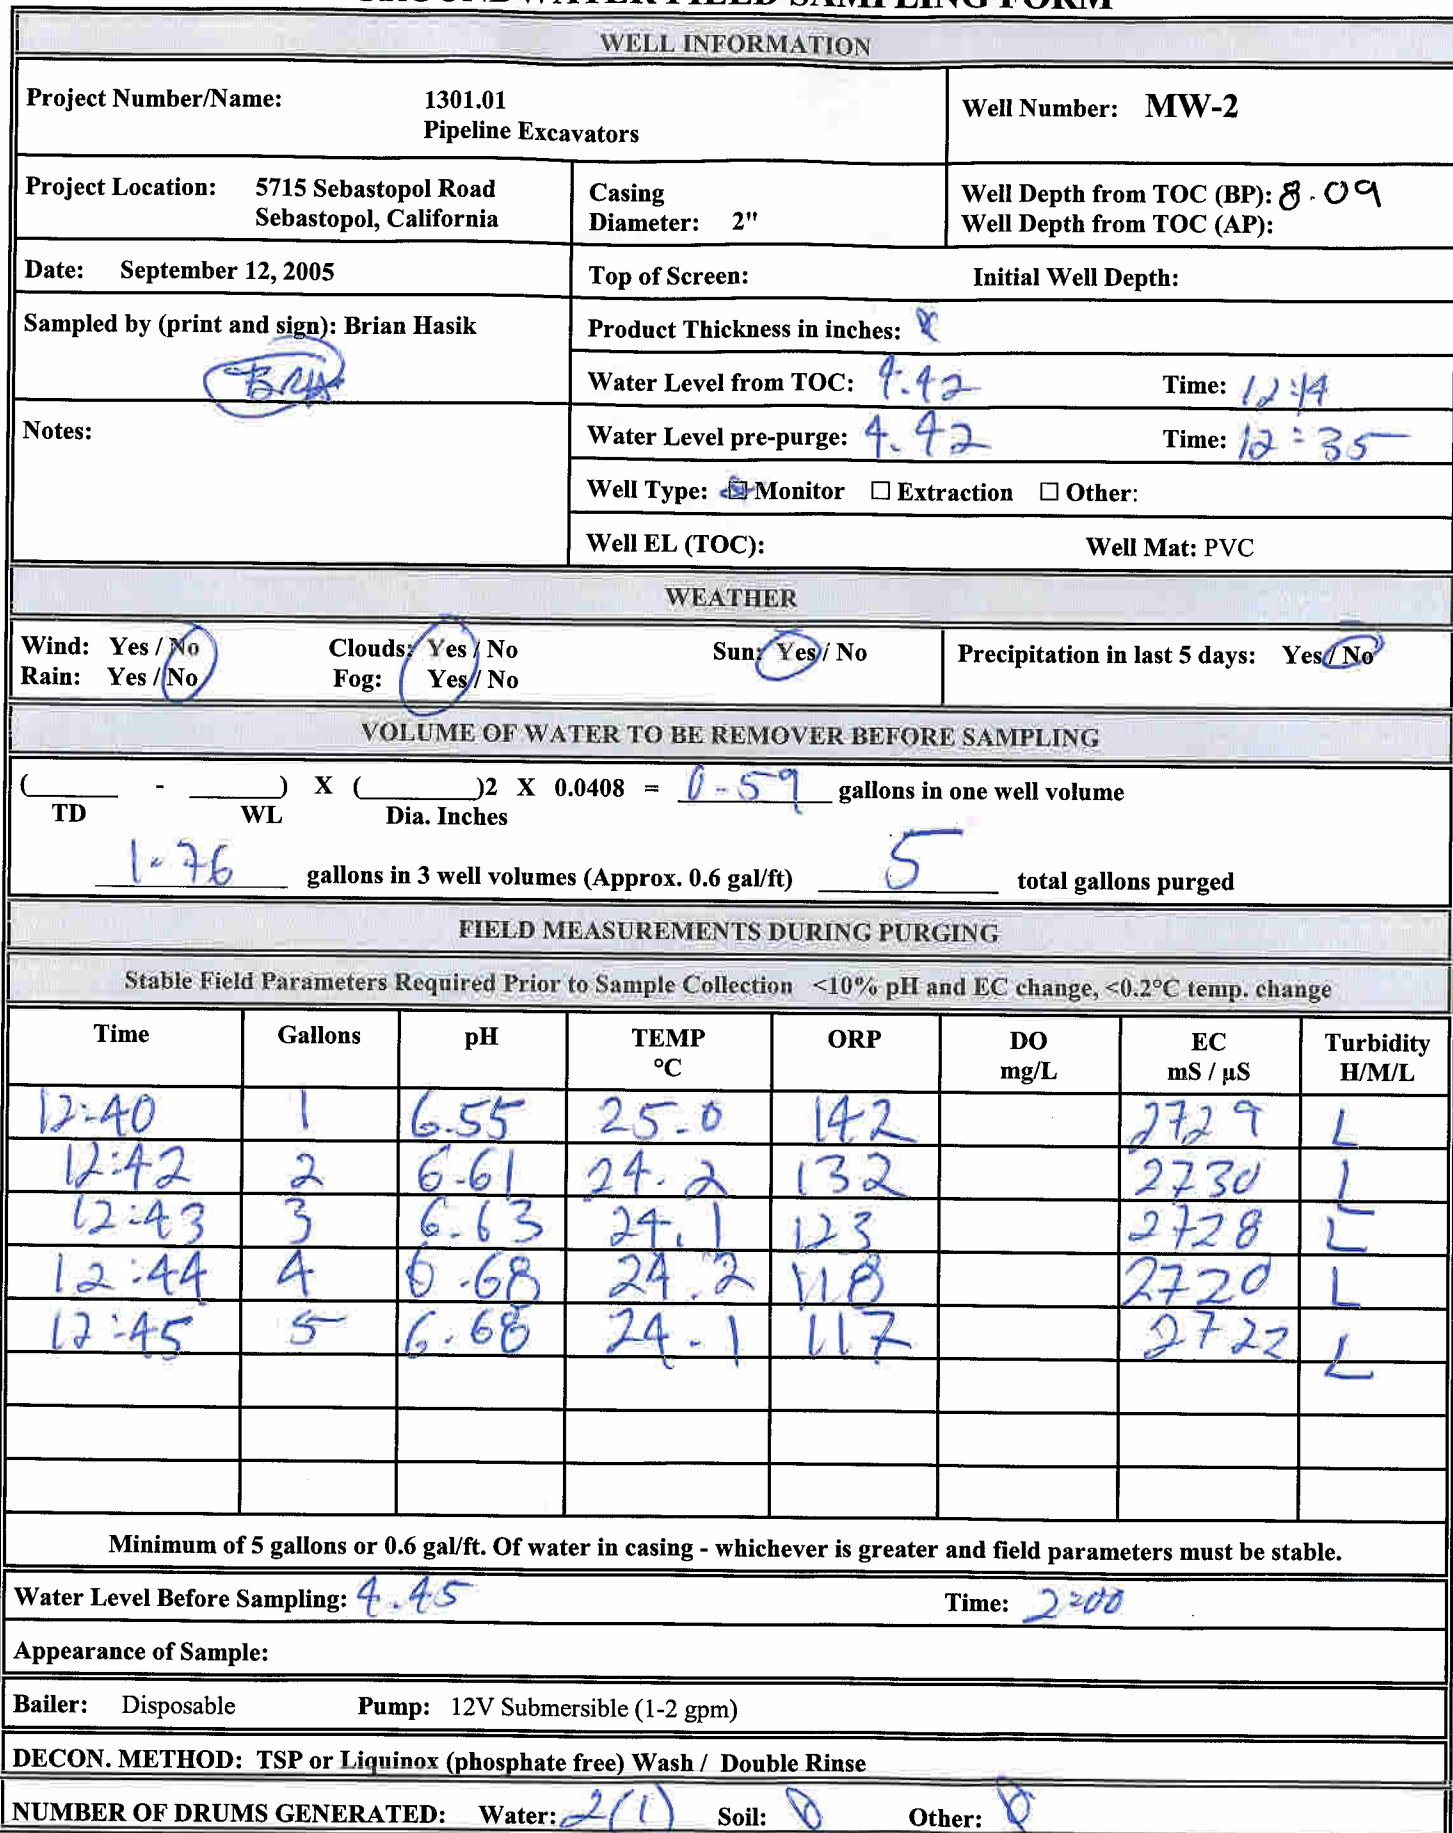 GROUNDWATER FIELD SAMPLING FORM
WELL INFORMATION
Project Number/Name: 1301.01
Pipeline Excavators
Well Number: MW-2
Project Location: 5715 Sebastopol Road
Sebastopol, California
Casing
Diameter: 2"
Well Depth from TOC (BP): 8.09
Well Depth from TOC (AP):
Date: September 12, 2005
Top of Screen: Initial Well Depth:
Sampled by (print and sign): Brian Hasik
Product Thickness in inches:
Water Level from TOC: 4.42 Time: 12:14
Notes:
Water Level pre-purge: 4.42 Time: 12:35
Well Type: ☒ Monitor ☐ Extraction ☐ Other:
Well EL (TOC): Well Mat: PVC
WEATHER
Wind: Yes / No Clouds: Yes / No Sun: Yes / No Precipitation in last 5 days: Yes / No
Rain: Yes / No Fog: Yes / No
VOLUME OF WATER TO BE REMOVER BEFORE SAMPLING
(______ - ______) X (________)2 X 0.0408 = 0.59 gallons in one well volume
TD WL Dia. Inches
1.76 gallons in 3 well volumes (Approx. 0.6 gal/ft) 5 total gallons purged
FIELD MEASUREMENTS DURING PURGING
Stable Field Parameters Required Prior to Sample Collection <10% pH and EC change, <0.2°C temp. change
Time Gallons pH TEMP ORP DO EC Turbidity
°C mg/L mS / µS H/M/L
12:40 1 6.55 25.0 142 2729 L
12:42 2 6.61 24.2 132 2730 L
12:43 3 6.63 24.1 123 2728 L
12:44 4 6.68 24.2 118 2720 L
12:45 5 6.68 24.1 117 2722 L
Minimum of 5 gallons or 0.6 gal/ft. Of water in casing - whichever is greater and field parameters must be stable.
Water Level Before Sampling: 4.45 Time: 2:00
Appearance of Sample:
Bailer: Disposable Pump: 12V Submersible (1-2 gpm)
DECON. METHOD: TSP or Liquinox (phosphate free) Wash / Double Rinse
NUMBER OF DRUMS GENERATED: Water: 2(1) Soil: 0 Other: 0